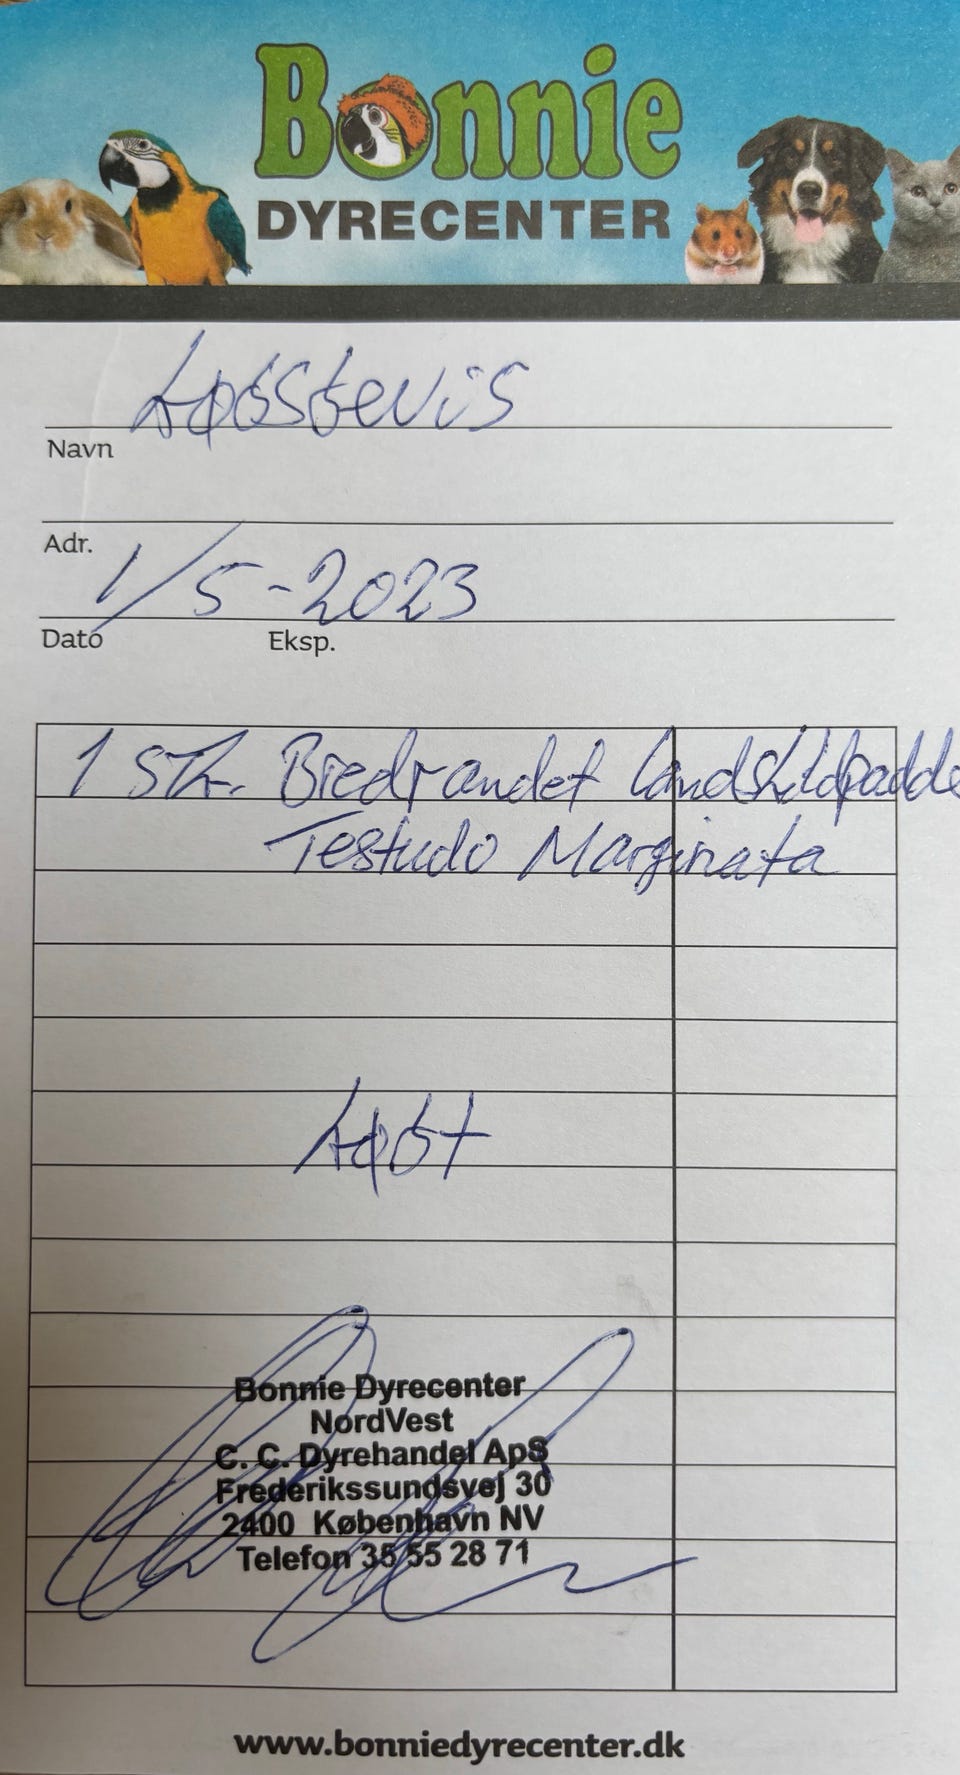 Bonnie
DYRECENTER
Købsbevis
Navn
Adr.
1/5-2023
Dato Eksp.
1 stk. Bredrandet landskildpadde
Testudo Marginata
Købt
Bonnie Dyrecenter
NordVest
C. C. Dyrehandel ApS
Frederikssundsvej 30
2400 København NV
Telefon 35 55 28 71
www.bonniedyrecenter.dk